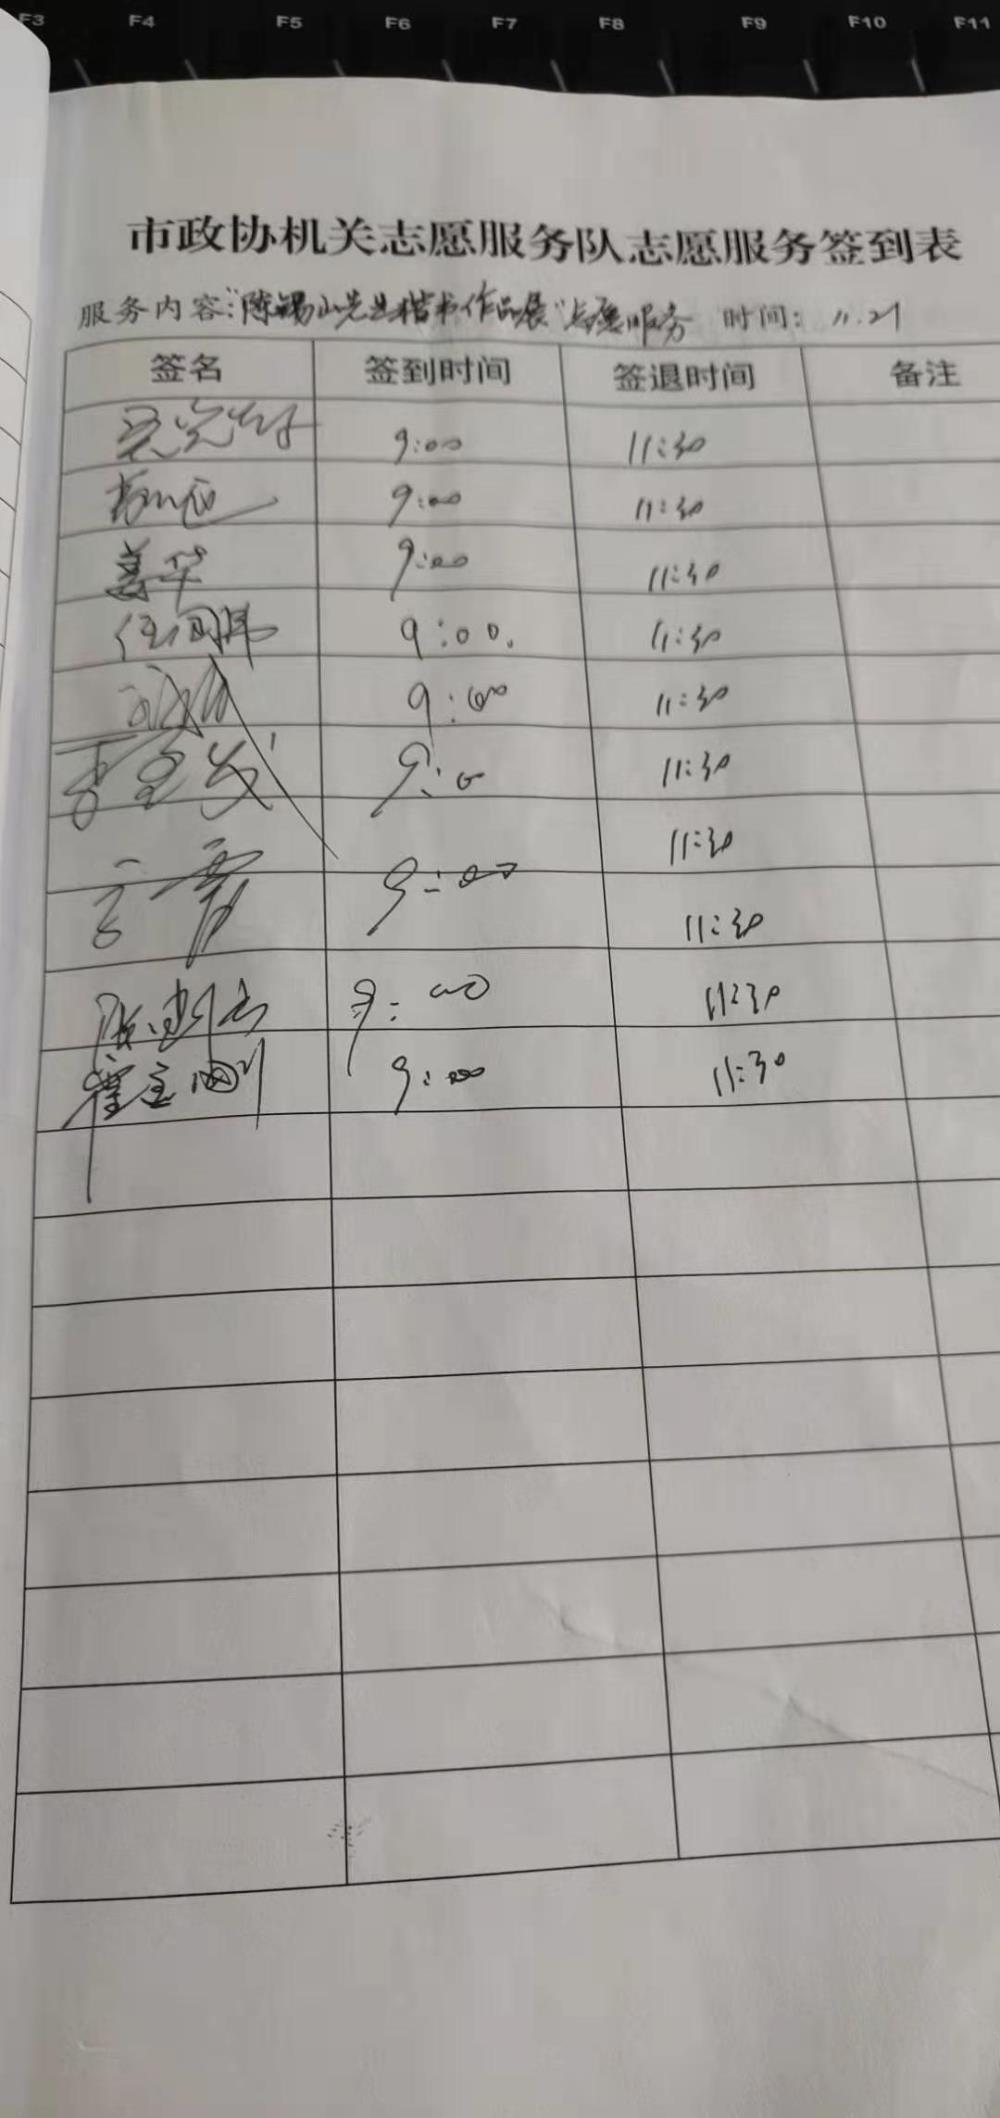 F3 F4 F5 F6 F7 F8 F9 F10 F11
市政协机关志愿服务队志愿服务签到表
服务内容:"陈锡山先生楷书作品展"志愿服务 时间: 11.21
签名 签到时间 签退时间 备注
9:00 11:30
9:00 11:30
姜华 9:00 11:30
任同伟 9:00. 11:30
9:00 11:30
李金发 9:0 11:30
11:30
9:00 11:30
9:00 11:30
9:00 11:30